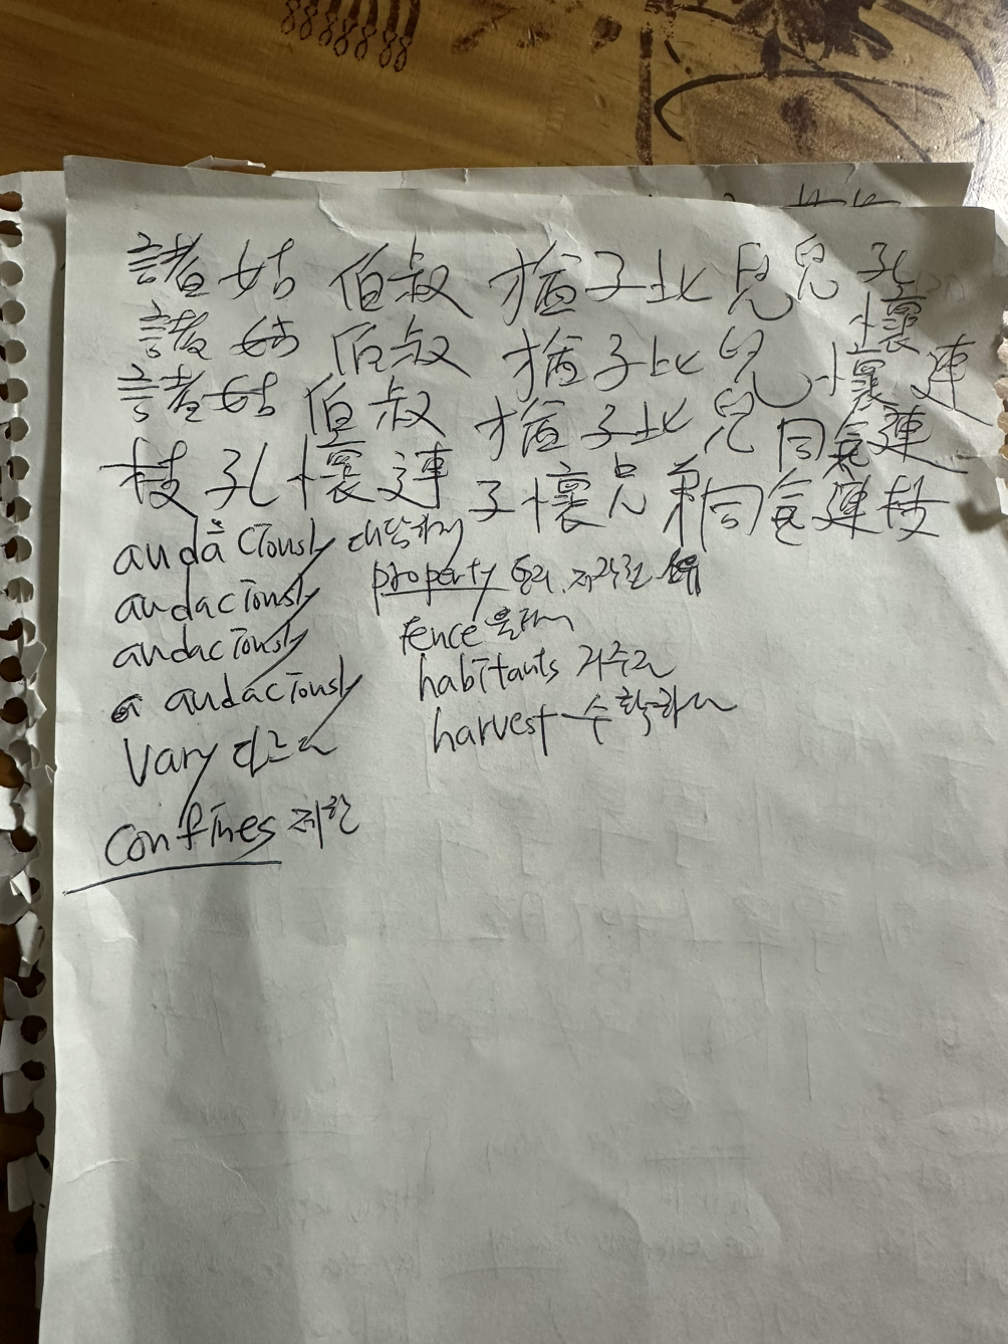 諸姑 伯叔 猶子比兒兒 孔懷
諸姑 伯叔 猶子比兒 懷 連
諸姑 伯叔 猶子比兒 同氣連
枝孔懷連 子懷兄弟同氣連枝
audaciously 대담하게
audaciously property 재산권 소유
audaciously fence 울타리
audaciously habitants 거주교
Vary 다르다 harvest 수확하다
Confines 제한